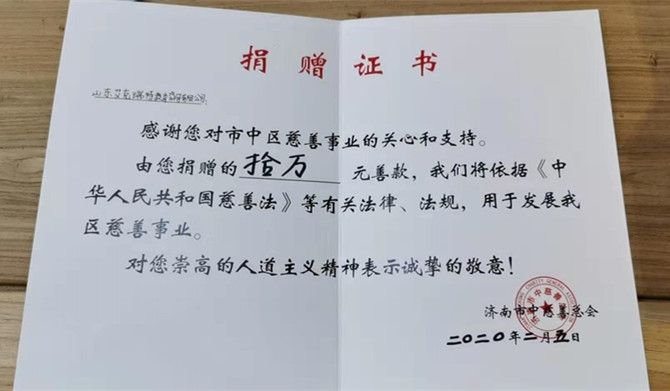 捐赠证书
感谢您对市中区慈善事业的关心和支持。
由您捐赠的拾万元善款，我们将依据《中
华人民共和国慈善法》等有关法律、法规，用于发展我
区慈善事业。
对您崇高的人道主义精神表示诚挚的敬意！
济南市中慈善总会
二〇二〇年二月五日